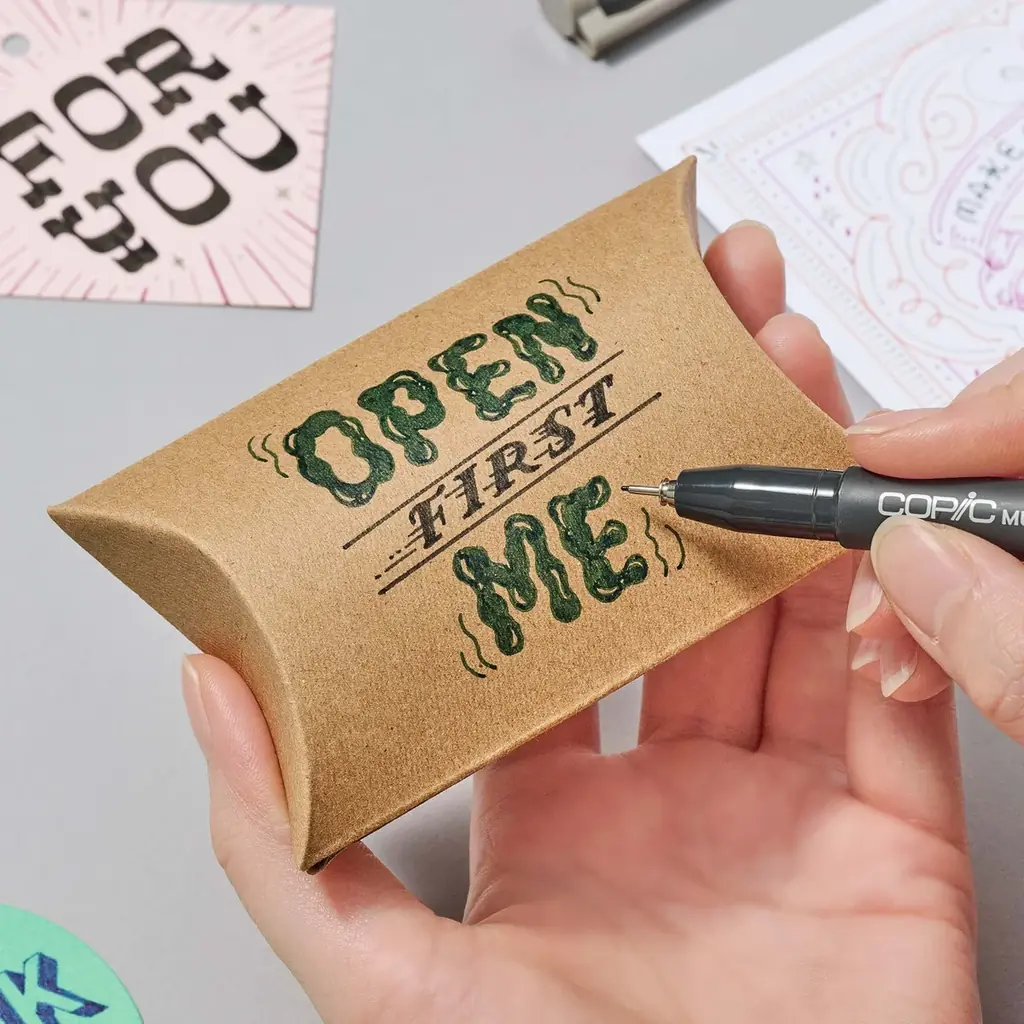 FOR
YOU
MAKE
OPEN
FIRST
ME
COPIC MU
K